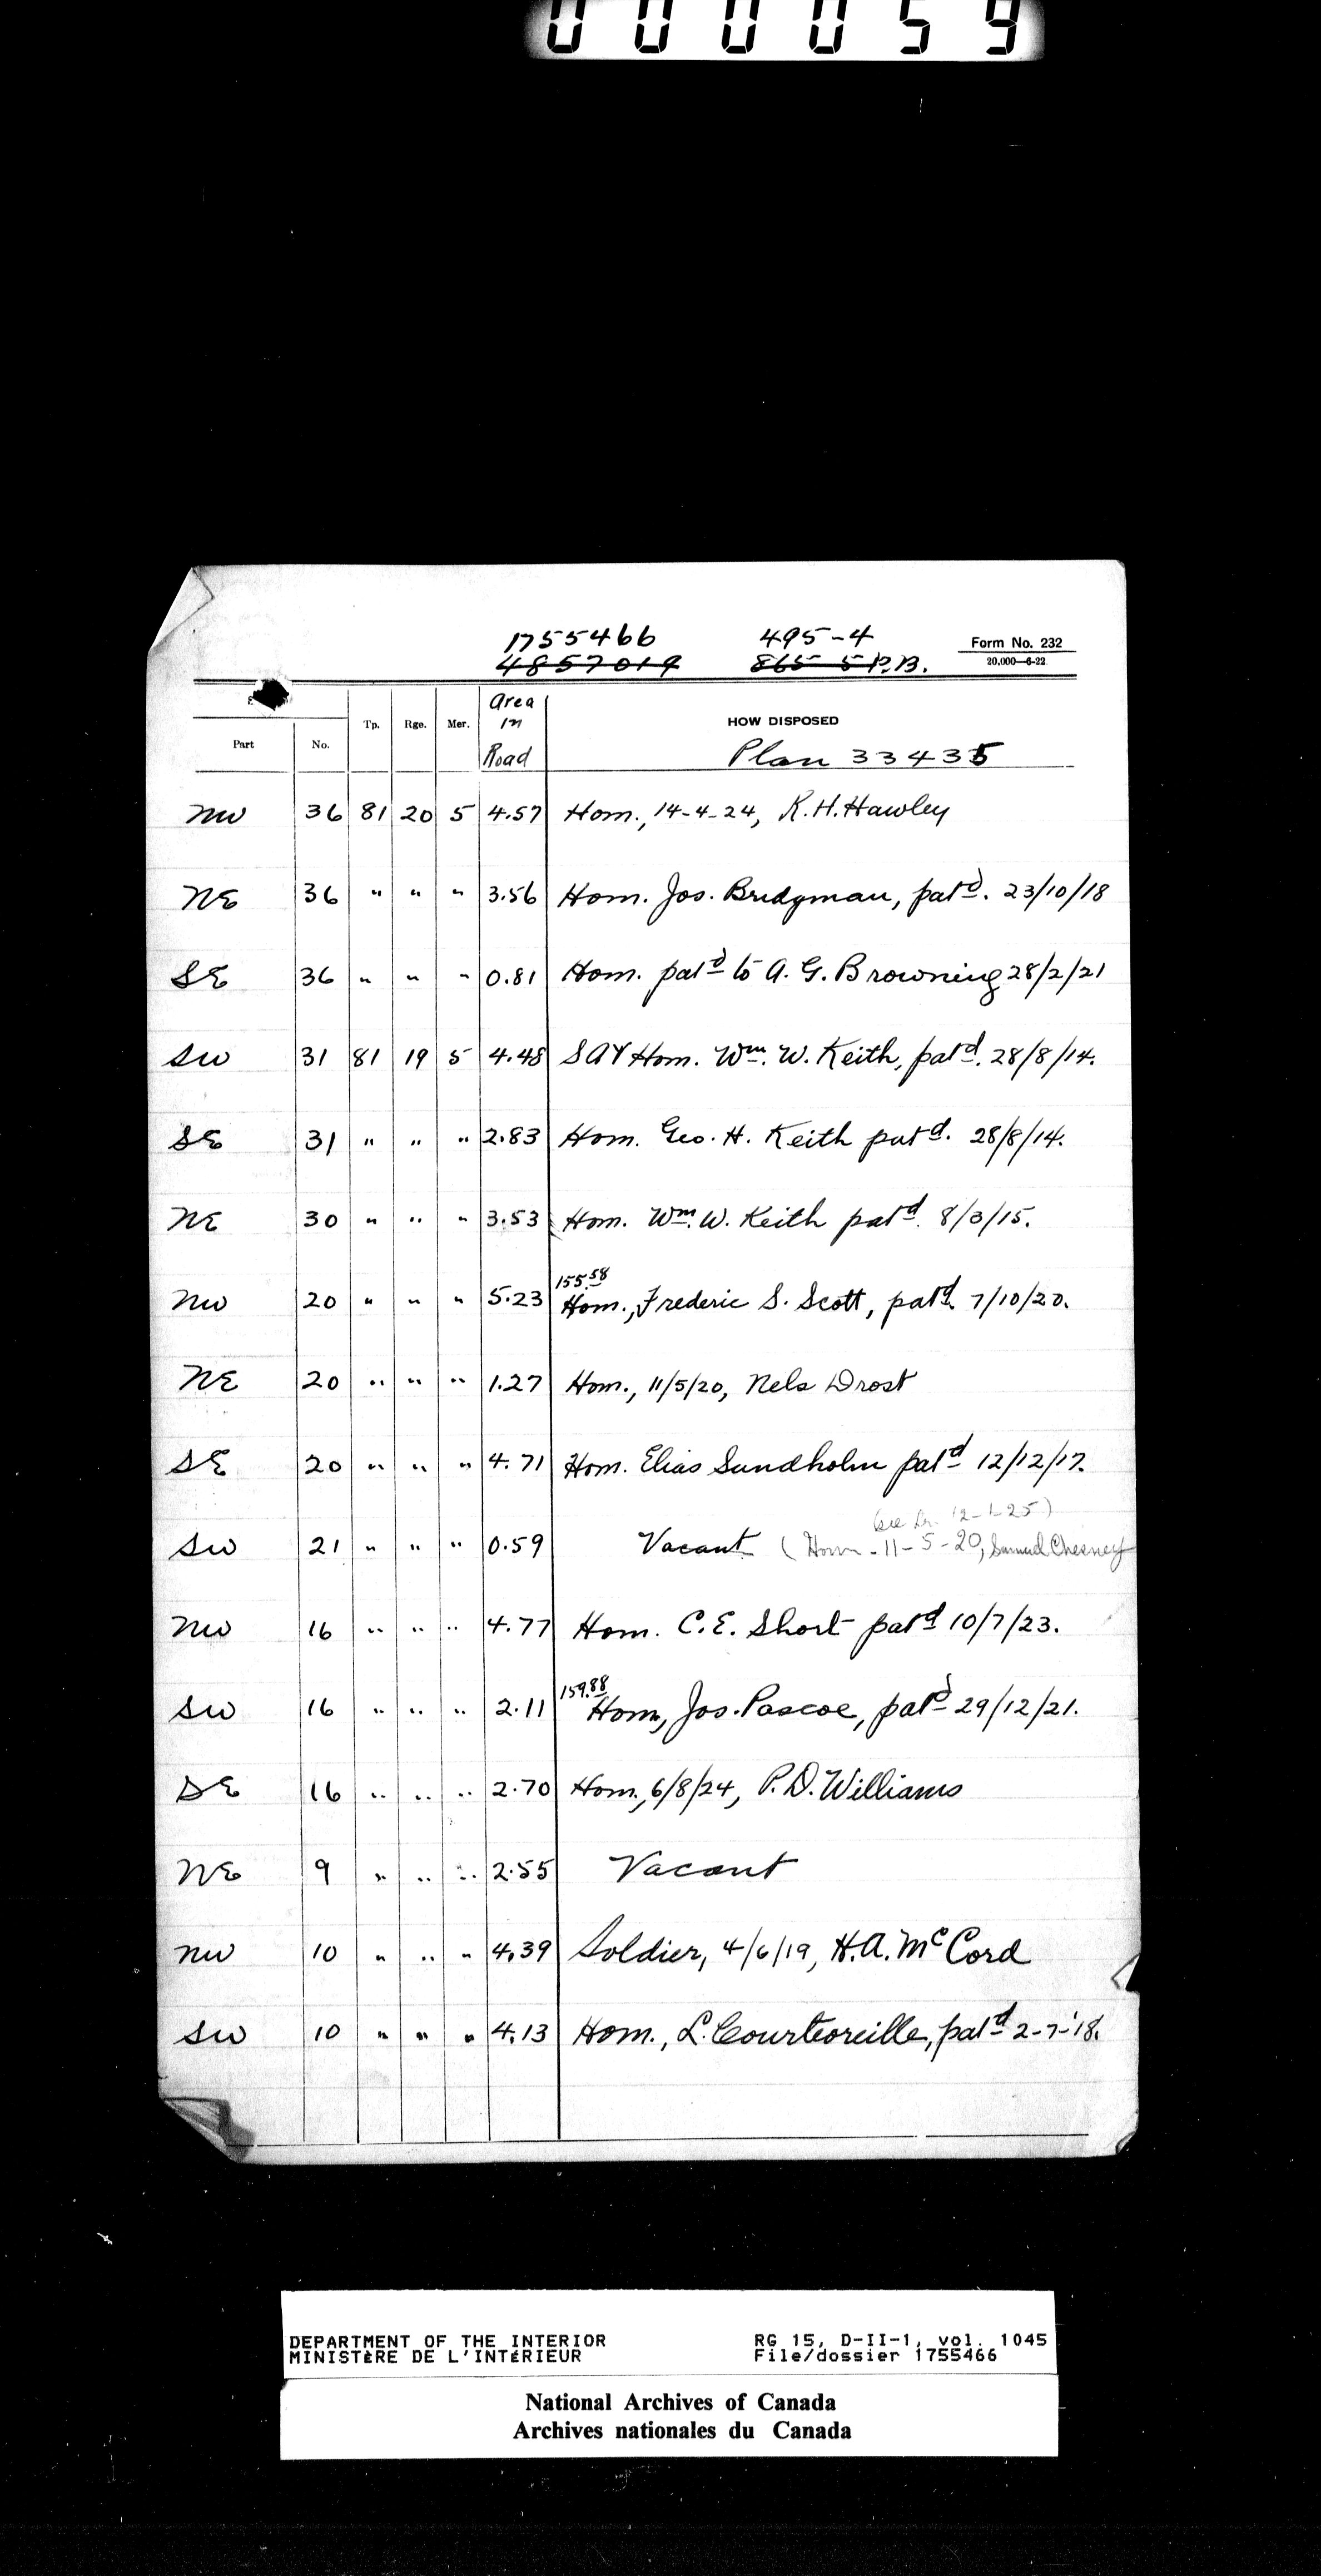 000059
1755466 495-4 Form No. 232
4857019 865-5 P.B. 20,000—6-22
Area in Road
Part No. Tp. Rge. Mer. HOW DISPOSED
Plan 33435
NW 36 81 20 5 4.57 Hom., 14-4-24, R.H. Hawley
NE 36 " " " 3.56 Hom. Jos. Bridgman, patd. 23/10/18
SE 36 " " " 0.81 Hom. patd to A. G. Browning 28/2/21
SW 31 81 19 5 4.48 SAY Hom. Wm. W. Keith, patd. 28/8/14.
SE 31 " " " 2.83 Hom. Geo. H. Keith patd. 28/8/14.
NE 30 " " " 3.53 Hom. Wm. W. Keith patd. 8/3/15.
155.58
NW 20 " " " 5.23 Hom., Frederic S. Scott, patd. 7/10/20.
NE 20 " " " 1.27 Hom., 11/5/20, Nels Drost
SE 20 " " " 4.71 Hom. Elias Sundholm patd 12/12/17.
12-1-25)
SW 21 " " " 0.59 Vacant (Hom - 11-5-20, Samuel Chesney
NW 16 " " " 4.77 Hom. C.E. Short patd 10/7/23.
159.88
SW 16 " " " 2.11 Hom, Jos. Pascoe, patd 29/12/21.
SE 16 " " " 2.70 Hom., 6/8/24, P.D. Williams
NE 9 " " " 2.55 Vacant
NW 10 " " " 4.39 Soldier, 4/6/19, H.A. McCord
SW 10 " " " 4.13 Hom., L. Courtoreille, patd 2-7-'18.
DEPARTMENT OF THE INTERIOR RG 15, D-II-1, vol. 1045
MINISTÈRE DE L'INTÉRIEUR File/dossier 1755466
National Archives of Canada
Archives nationales du Canada